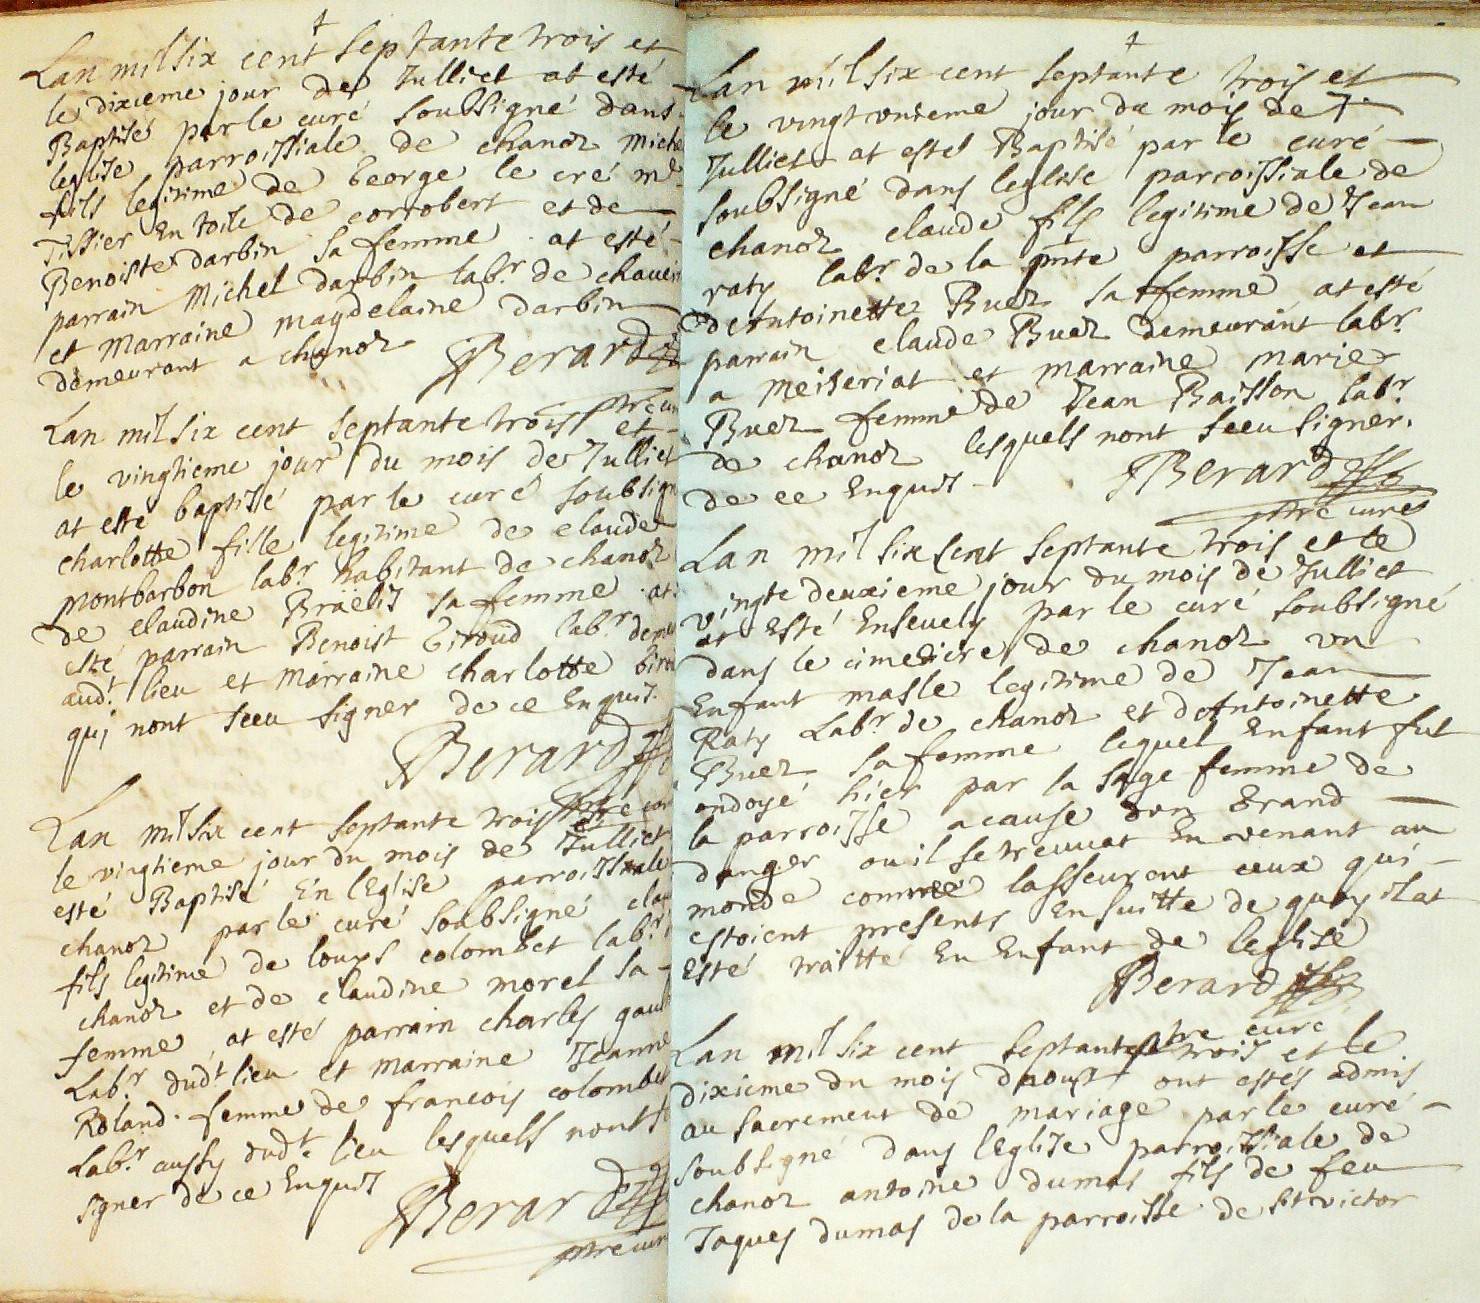 Lan mil six cent septante trois et
le dixieme jour de Julliet at esté
Baptisé par le curé soubsigné dans
leglise parroissiale de chanoz Miche
fils legitime de George le cré me
Tissier En toile de corrobert et de
Benoiste darbin sa femme at esté
parrain Michel darbin labr. de chavei
et Marraine magdelaine darbin
demeurant a chanoz Berard
ptre cu
Lan mil six cent septante trois et
le vingtieme jour du mois de Julliet
at esté baptisé par le curé soubsign
charlotte fille legitime de claude
montbarbon labr. habitant de chanoz
de claudine Braëlis sa femme at
esté parrain Benoist Giroud labr. demeu
audt. lieu et Marraine charlotte Giro
quj nont sceu signer de ce Enquis.
Berard
ptre cur
Lan mil six cent septante trois et
le vingtieme jour du mois de Julliet
esté Baptisé En lEglise parroissiale
chanoz par le curé soubsigné clau
fils legitime de louys colombet labr.
chanoz et de claudine morel sa
femme at esté parrain charles gaul
Labr. dudt lieu et Marraine Jeanne
Roland femme de francois colombet
Labr. aussy dudt. lieu lesquels nont s
signer de ce Enquis Berard
ptre cur
Lan mil six cent septante trois et
le vingt unieme jour du mois de J
Julliet at esté Baptisé par le curé
soubsigné dans leglise parroissiale de
chanoz claude fils legitime de Jean
raty labr. de la pnte parroisse et
dAntoinette Buez sa femme at esté
parrain claude Buez demeurant labr.
a Meiseriat et marraine marie
Buez femme de Jean Baisson labr.
de chanoz lesquels nont sceu signer.
de ce Enquis Berard
ptre curé
Lan mil six Cent septante trois et le
vingte deuxieme jour du mois de Julliet
at Esté Ensevely par le curé soubsigné
dans le cimetiere de chanoz un
Enfant masle legitime de Jean
Raty Labr. de chanoz et dAntoinette
Buez sa femme lequel Enfant fut
ondoyé hier par la sage femme de
la parroisse a cause dun Grand
danger ou il se treuvat En venant au
monde comme lasseurent ceux qui
estoient presents Ensuitte de quoy il at
Esté traitté En Enfant de leglise
Berard
ptre curé
Lan mil six cent septante trois et le
dixieme du mois daoust ont estés admis
au sacrement de mariage par le curé
soubsigné dans lEglise parroissiale de
chanoz antoine dumas fils de feu
Jaques dumas de la parroisse de St victor